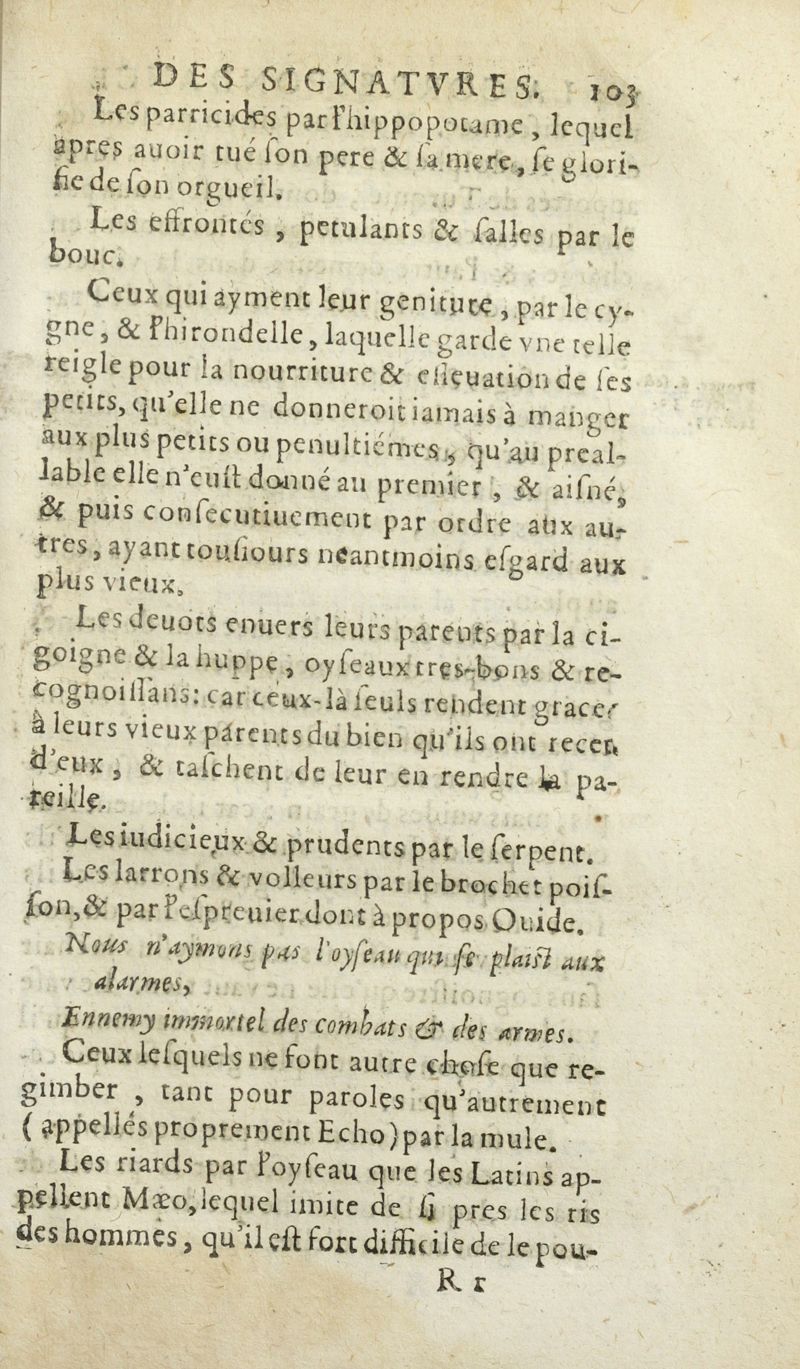 DES SIGNATVRES. 103
Les parricides par l'hippopotame, lequel
apres auoir tué ſon pere & ſa mere, ſe glori-
fie de ſon orgueil.
Les effrontés, petulants & ſalles par le
bouc.
Ceux qui ayment leur geniture, par le cy-
gne, & l'hirondelle, laquelle garde vne telle
reigle pour la nourriture & eſleuation de ſes
petits, qu'elle ne donneroit iamais à manger
aux plus petits ou penultiémes, qu'au preal-
lable elle n'euſt donné au premier, & aiſné,
& puis conſecutiuement par ordre aux au-
tres, ayant touſiours néantmoins eſgard aux
plus vieux.
Les deuots enuers leurs parents par la ci-
goigne & la huppe, oyſeaux tres-bons & re-
cognoiſſans: car ceux-là ſeuls rendent grace
à leurs vieux parents du bien qu'ils ont receu
d'eux, & taſchent de leur en rendre la pa-
reille.
Les iudicieux & prudents par le ſerpent.
Les larrons & volleurs par le brochet poiſ-
ſon, & par l'eſpreuier dont à propos Ouide.
Nous n'aymons pas l'oyſeau qui ſe plaiſt aux
alarmes,
Ennemy immortel des combats & des armes.
Ceux leſquels ne font autre choſe que re-
gimber, tant pour paroles qu'autrement
(appellés proprement Echo) par la mule.
Les riards par l'oyſeau que les Latins ap-
pellent Mæo, lequel imite de ſi pres les ris
des hommes, qu'il eſt fort difficile de le pou-
R r